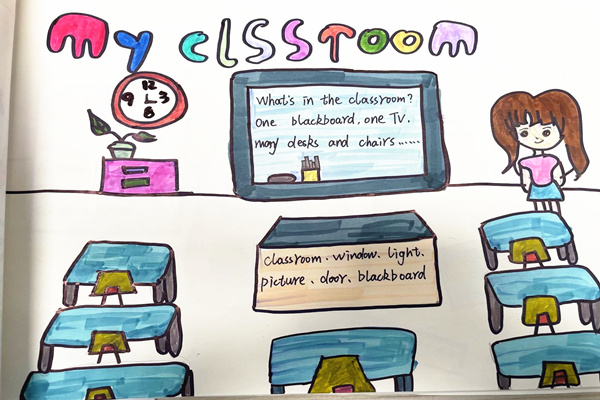 my clssroom
12
9 3
6
What's in the classroom?
One blackboard, one TV.
many desks and chairs......
classroom、window、light、
picture、door、blackboard